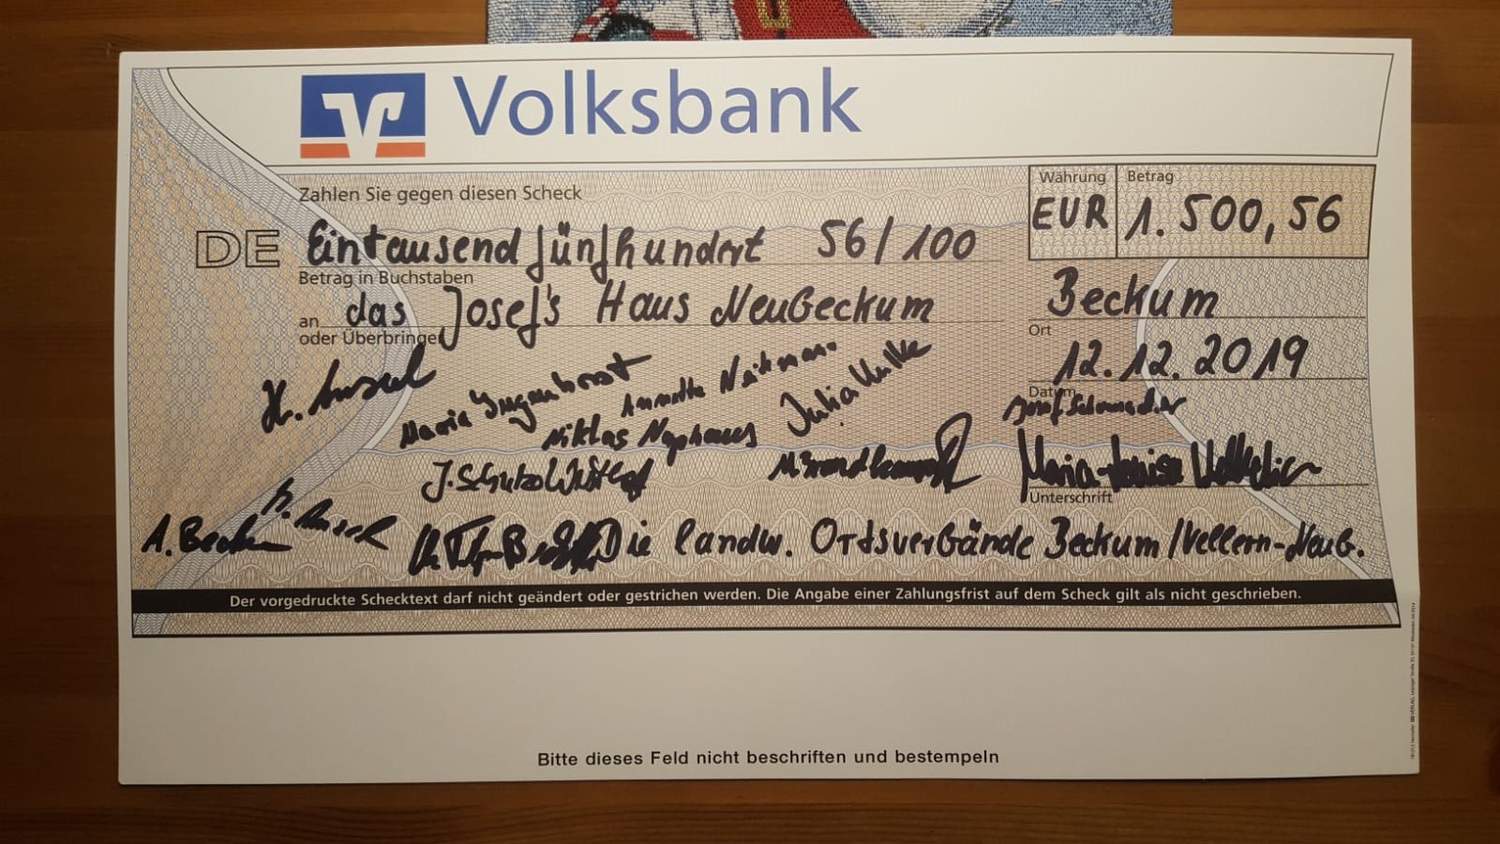 Volksbank
Zahlen Sie gegen diesen Scheck
Währung Betrag
EUR 1.500,56
DE Eintausendfünfhundert 56/100
Betrag in Buchstaben
an das Josef's Haus Neubeckum
oder Überbringer
Beckum
Ort
12.12.2019
Datum
Maria
Annette
Julia
Niklas
Josef Schumacher
Maria-Luise
Unterschrift
A.
Die landw. Ortsverbände Beckum/Vellern-Neub.
Der vorgedruckte Schecktext darf nicht geändert oder gestrichen werden. Die Angabe einer Zahlungsfrist auf dem Scheck gilt als nicht geschrieben.
Bitte dieses Feld nicht beschriften und bestempeln